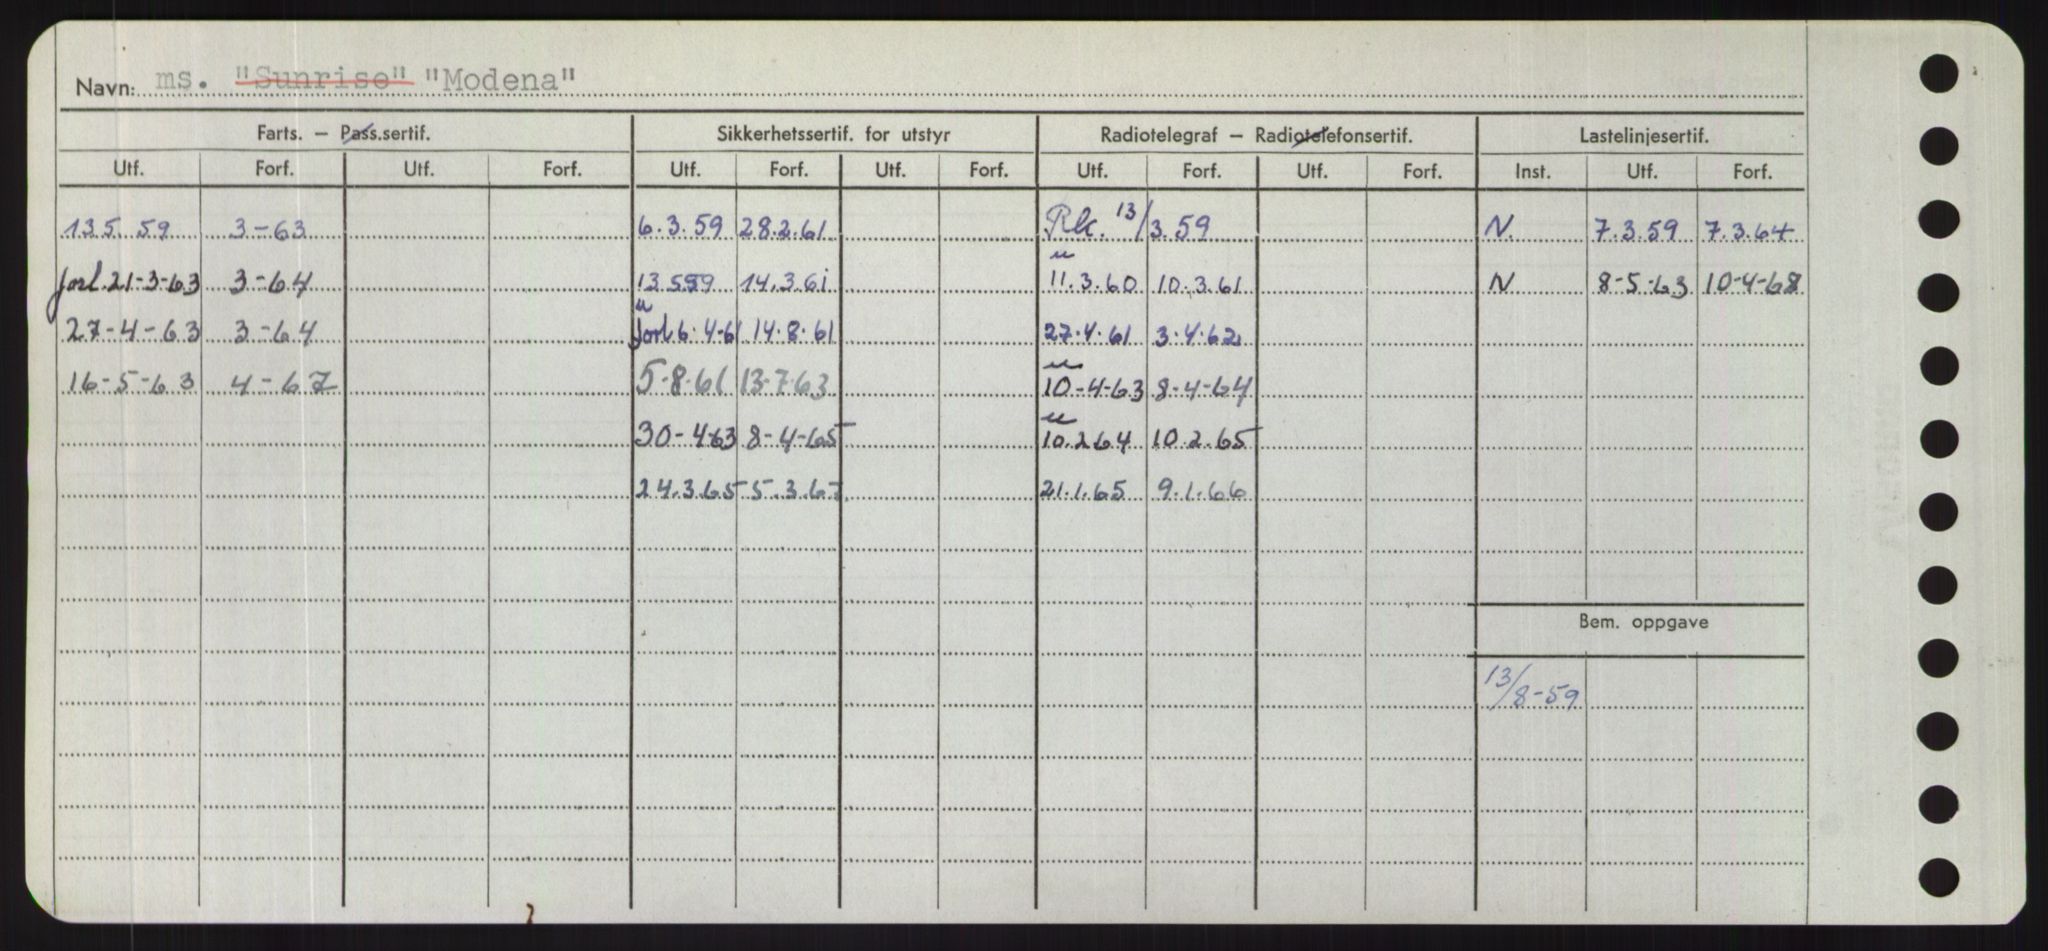 Navn: ms. "Sunrise" "Modena"
Farts. — Pass.sertif. Sikkerhetssertif. for utstyr Radiotelegraf — Radiotelefonsertif. Lastelinjesertif.
Utf. Forf. Utf. Forf. Utf. Forf. Utf. Forf. Utf. Forf. Utf. Forf. Inst. Utf. Forf.
13.5.59 3-63 6.3.59 28.2.61 13/3.59 N. 7.3.59 7.3.64
forl.21-3-63 3-64 13.5.59 14.3.61 11.3.60 10.3.61 N 8-5-63 10-4-68
27-4-63 3-64 forl 6.4-61 14.8.61 27.4.61 3.4.62
16-5-63 4-67 5.8.61 13.7.63 10-4-63 8-4-64
30-4-63 8-4-65 10.2.64 10.2.65
24.3.65 5.3.67 21.1.65 9.1.66
Bem. oppgave
13/8-59